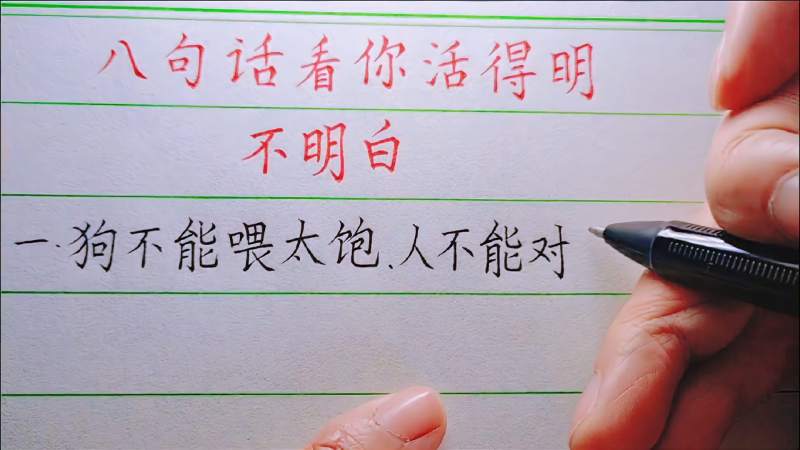 八句话看你活得明
不明白
一.狗不能喂太饱、人不能对